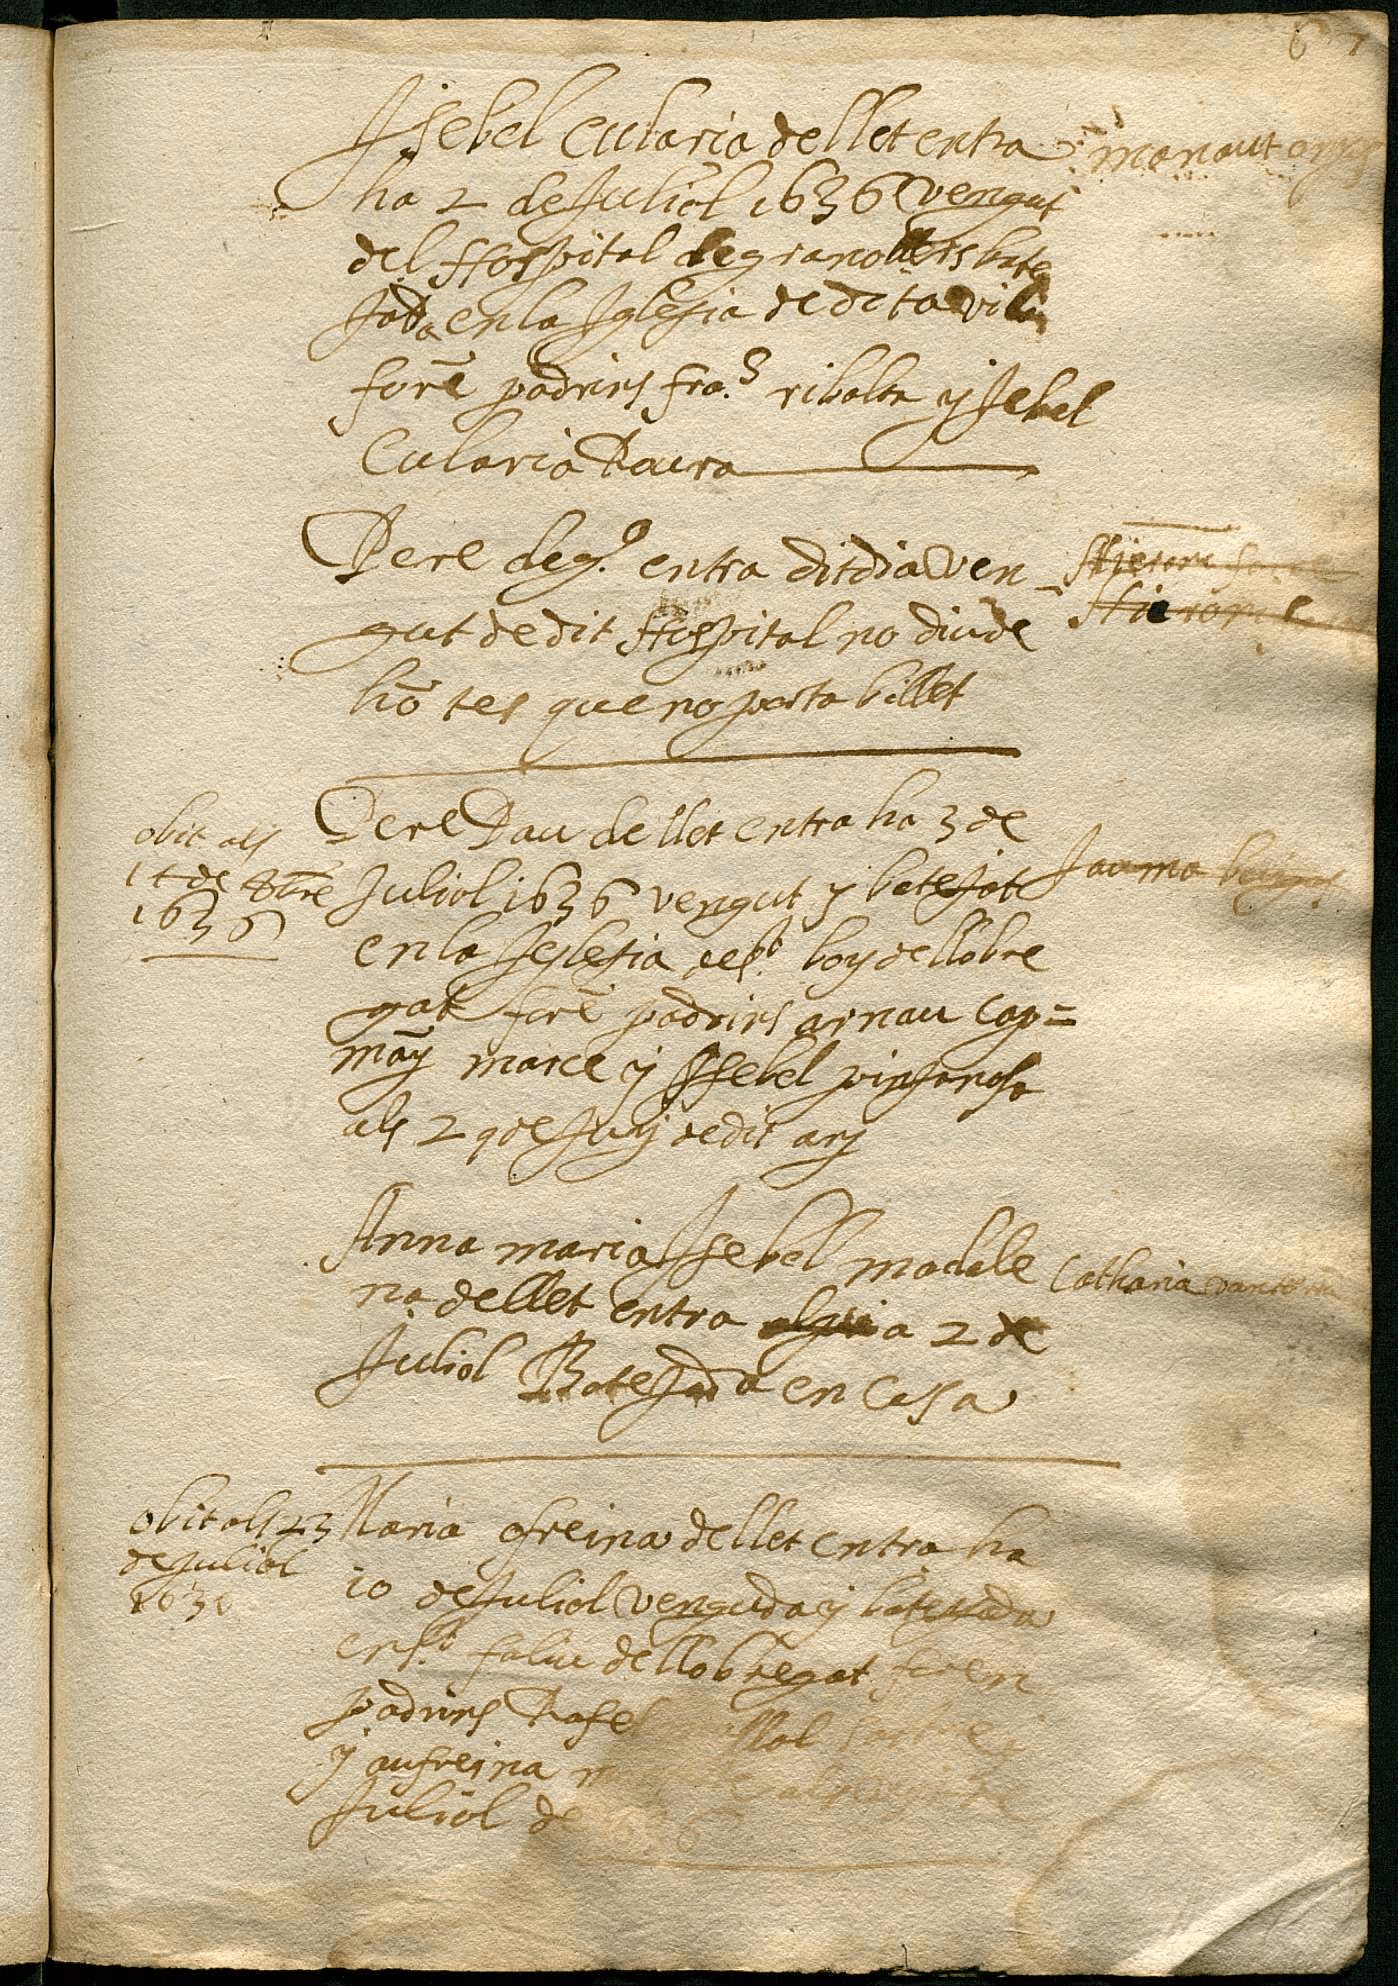 Isebel Eularia de llet entra
ha 2 de Juliol 1636 vengut
del Hospital de granollers bate
Jada en la Iglesia de dita vila
forē padrins fra.ͨͦ ribalta y Isebel
Eularia Paura
manaut
Pere de g.ͦ entra dit dia ven
gut de dit Hospital no diu de
hō tes que no porta billet
Hieroni
Hieroni
obit als
14 de 8bre
1636
Pere Pau de llet entra ha 3 de
Juliol 1636 vengut y batejat
en la Iglesia de S.ͭ boy de llobre
gat forē padrins arnau Cap=
māy marce y Isebel
als 29 de Juny de dit any
Jauma
Anna maria Isebel madale
na de llet entra a 2 de
Juliol Batejada en Casa
Catharia
obit als 23
de Juliol
1636
Maria ofreina de llet entra ha
10 de Juliol venguda y batejada
en S.ͭ faliu de llobregat foren
padrins Rafel
y aufreina
Juliol de 1636